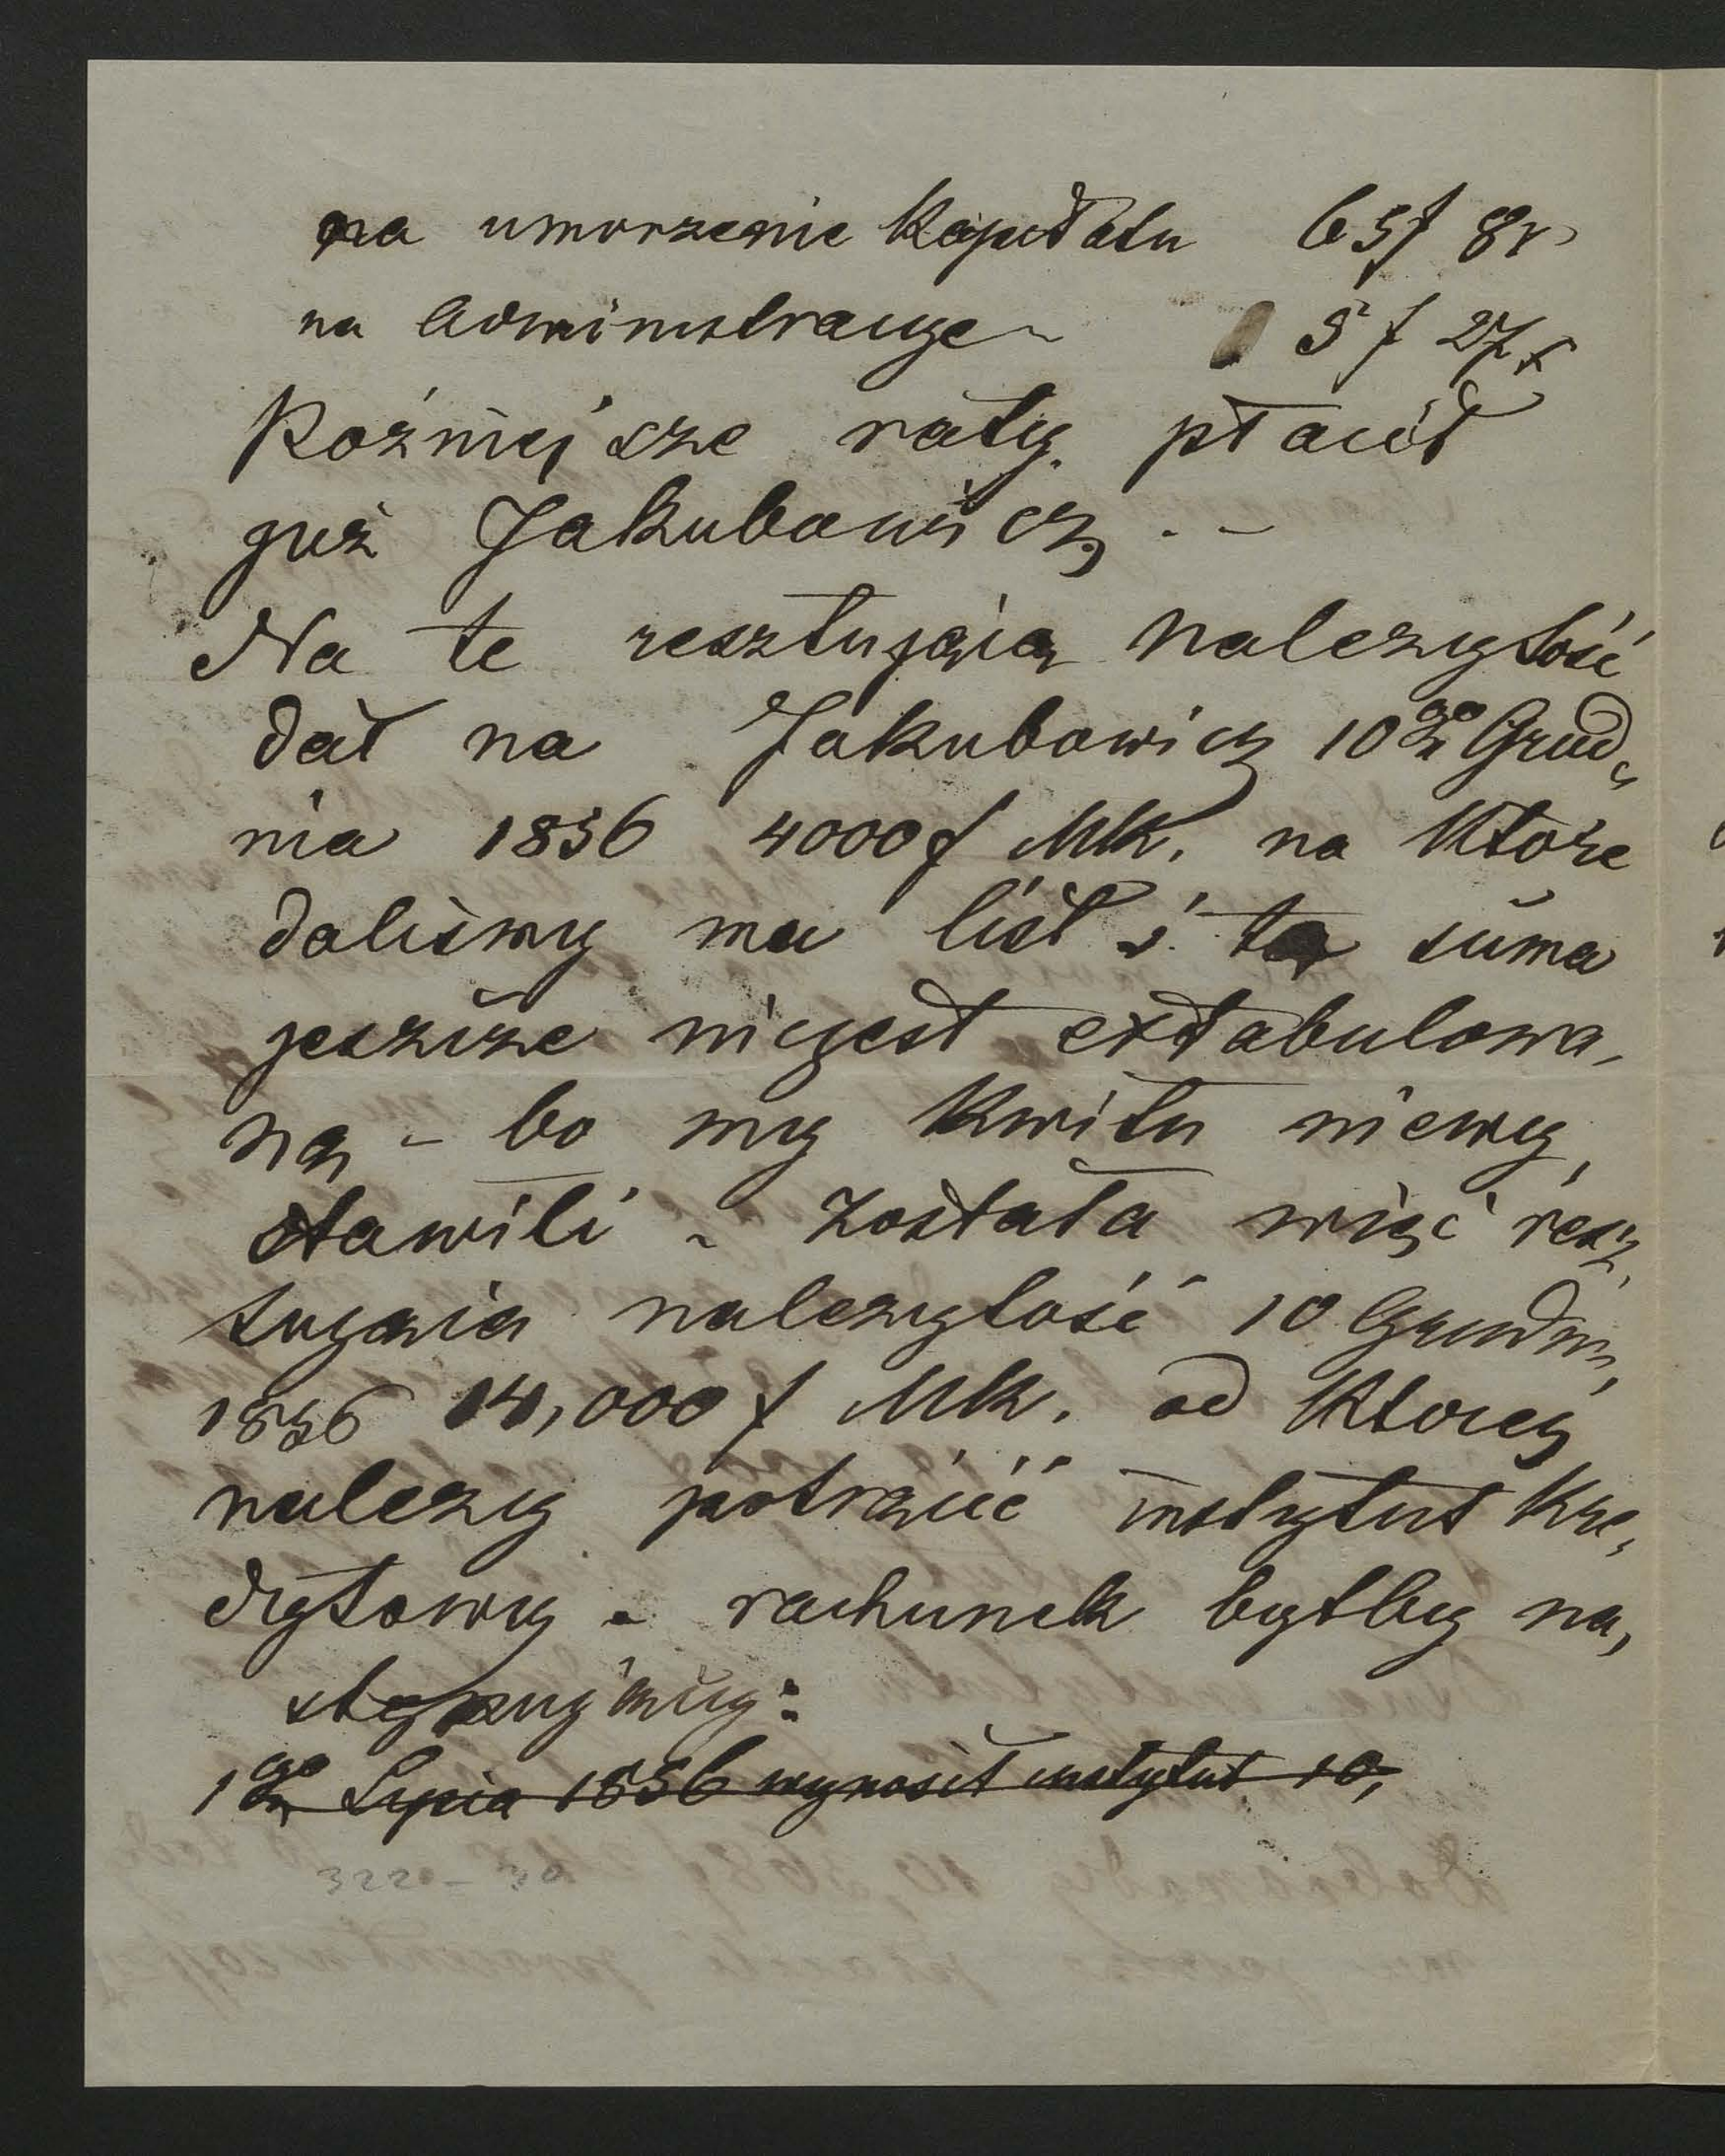 na umorzenie Kapitału 65f 8x
na Administracye – 5f 27x
Poźniejsze raty płacił
już Jakubowicz . –
Na te resztującą należytość
dał na Jakubowicz 10go Grud,
nia 1856 4000f MK. na Które
daliśmy mu list i ta suma
jeszcze niejest extabulowa,
ną – bo my Kwitu niewy,
stawili – Została więc resz,
tująca należytość 10 Grudni,
1856 14,000f MK. od Ktorej
należy potrącić instytut Kre,
dytowy – rachunek byłby na,
stępujący:
1go Lipca 1856 wynosił instytut 10,
322 – 30